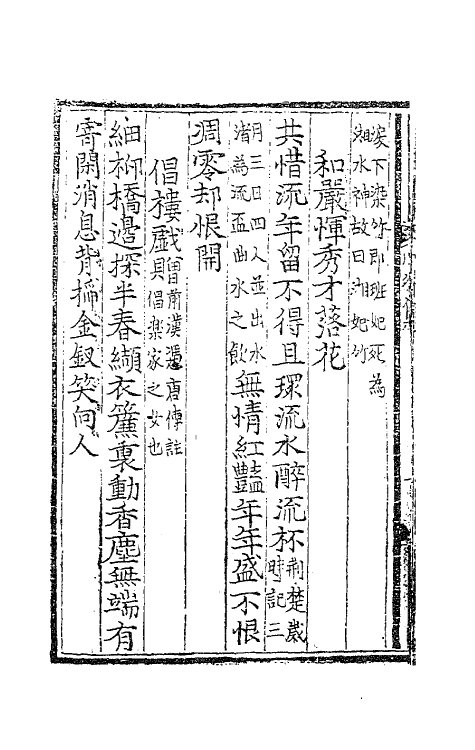 淚下染竹即班妃死為
湘水神故曰湘妃竹
和嚴惲秀才落花
共惜流年留不得且環流水醉流杯荆楚歲
時記三
月三日四人並出水
渚為流盃曲水之飲無情紅豔年年盛不恨
凋零却恨開
倡樓戲前漢憑唐傳註
具倡樂家之女也
細柳橋邉探半春纈衣簾裏動香塵無端有
寄閑消息背插金釵笑向人